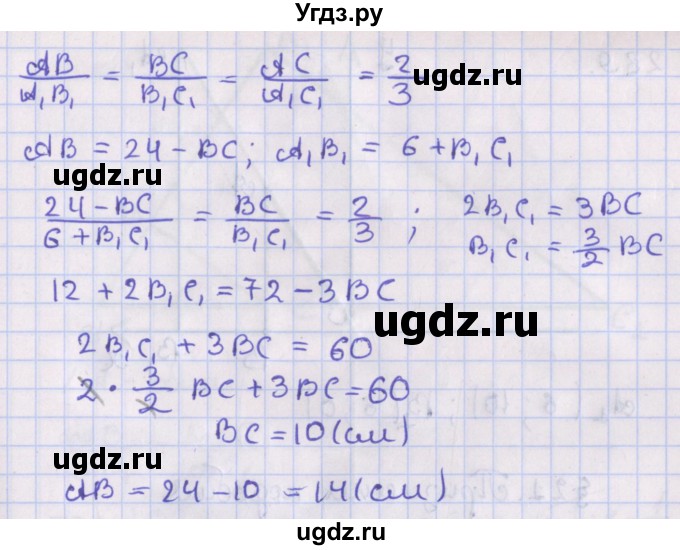 Угдз.ру
AB/A₁B₁ = BC/B₁C₁ = AC/A₁C₁ = 2/3
ugdz.ru
AB = 24 − BC; A₁B₁ = 6 + B₁C₁
ugdz.ru
(24 − BC)/(6 + B₁C₁) = BC/B₁C₁ = 2/3 ; 2B₁C₁ = 3BC
B₁C₁ = 3/2 BC
12 + 2B₁C₁ = 72 − 3BC
ugdz.ru
2B₁C₁ + 3BC = 60
2 · 3/2 BC + 3BC = 60
BC = 10 (см)
ugdz.ru
AB = 24 − 10 = 14 (см)
ugdz.ru
ugdz.ru